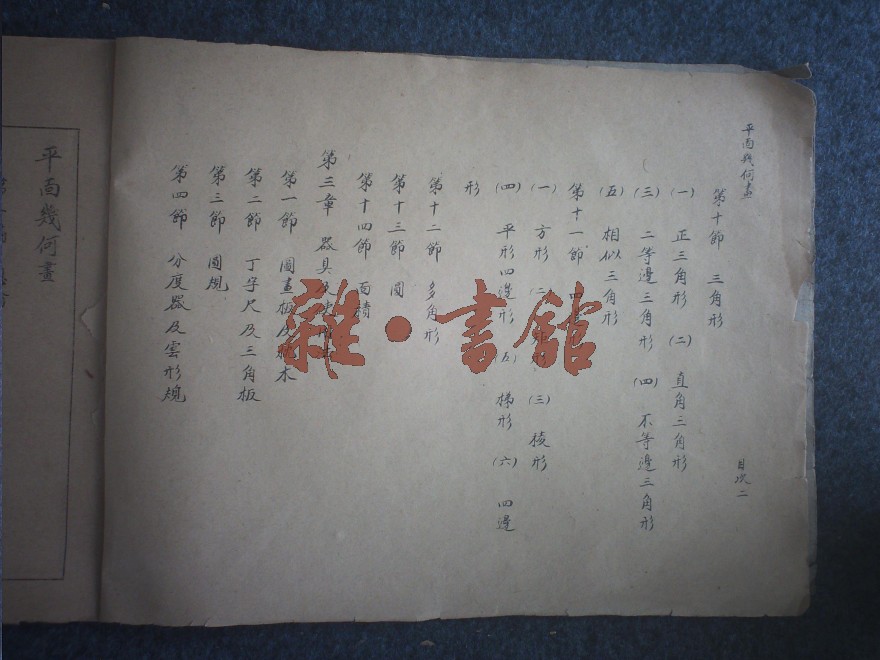 平面幾何畫
目次二
第十節 三角形
(一) 正三角形 (二) 直角三角形
(三) 二等邊三角形 (四) 不等邊三角形
(五) 相似三角形
第十一節 四
(一) 方形 (二) (三) 棱形
(四) 平形四邊形 (五) 梯形 (六) 四邊
形
第十二節 多角形
第十三節 圓
第十四節 面積
第三章 器具及
第一節 圖畫板及枕木
第二節 丁字尺及三角板
第三節 圓規
第四節 分度器及雲形規
平面幾何畫
雜·書館